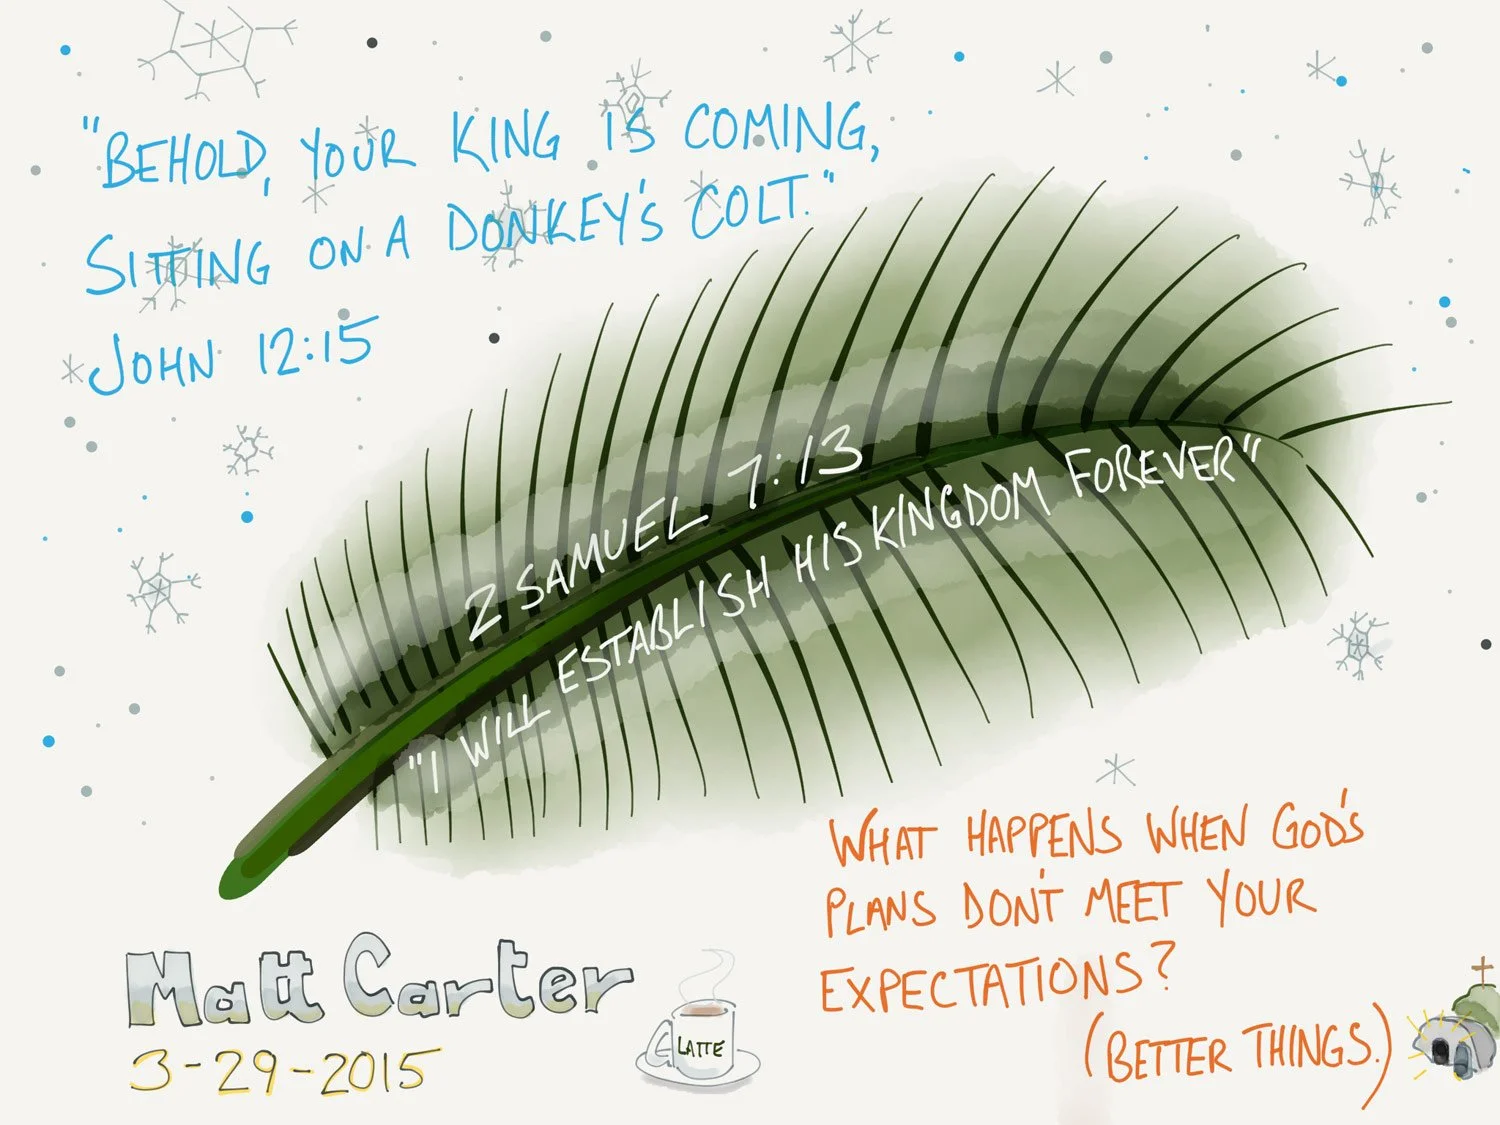 "BEHOLD, YOUR KING IS COMING,
SITTING ON A DONKEY'S COLT."
JOHN 12:15
2 SAMUEL 7:13
"I WILL ESTABLISH HIS KINGDOM FOREVER"
WHAT HAPPENS WHEN GOD'S
PLANS DON'T MEET YOUR
EXPECTATIONS?
(BETTER THINGS.)
Matt Carter
3-29-2015
LATTE